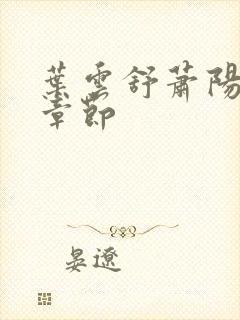 葉雲舒蕭陽
章節
晏遼